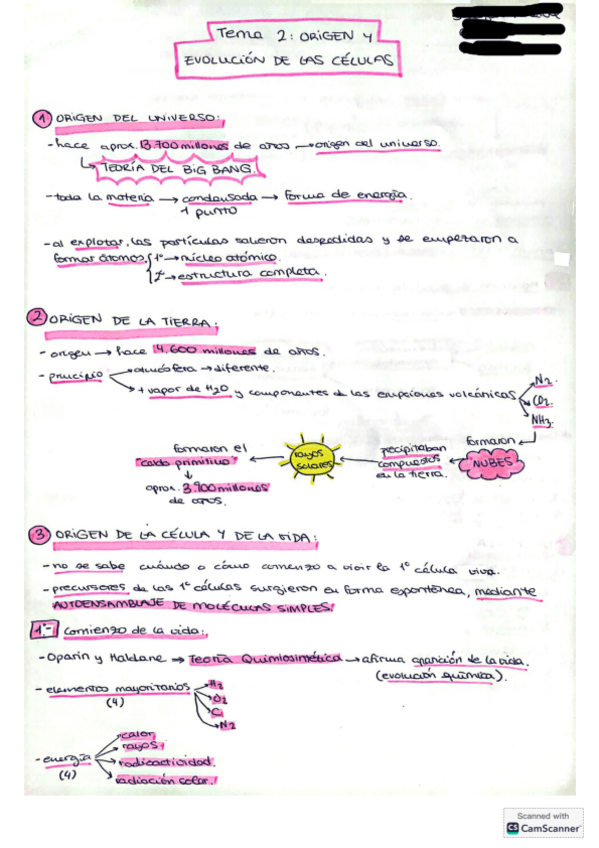 Tema 2: ORIGEN Y
EVOLUCIÓN DE LAS CÉLULAS
1 ORIGEN DEL UNIVERSO:
- hace aprox. 13.700 millones de años → origen del universo.
↳ TEORÍA DEL BIG BANG.
- toda la materia → condensada → forma de energía.
1 punto
- al explotar, las partículas salieron despedidas y se empezaron a
formar átomos. 1º → núcleo atómico.
2º → estructura completa.
2 ORIGEN DE LA TIERRA:
- origen → hace 4.600 millones de años.
- principio → atmósfera → diferente.
+ vapor de H2O y componentes de las erupciones volcánicas
N2.
CO2.
NH3.
formaron
NUBES
precipitaban
compuestos
en la tierra.
rayos
solares
formaron el
"caldo primitivo"
aprox. 3.900 millones
de años.
3 ORIGEN DE LA CÉLULA Y DE LA VIDA:
- no se sabe cuándo o cómo comenzo a vivir la 1º célula viva.
- precursores de las 1º células surgieron en forma espontánea, mediante
AUTOENSAMBLAJE DE MOLÉCULAS SIMPLES.
1º- Comienzo de la vida:
- Oparin y Haldane → Teoría Quimiosintética → afirma aparición de la vida.
(evolución química).
- elementos mayoritarios
(4)
H2
O2
C
N2
- energía
(4)
calor
rayos
radioactividad.
radiación solar.
Scanned with
CS CamScanner